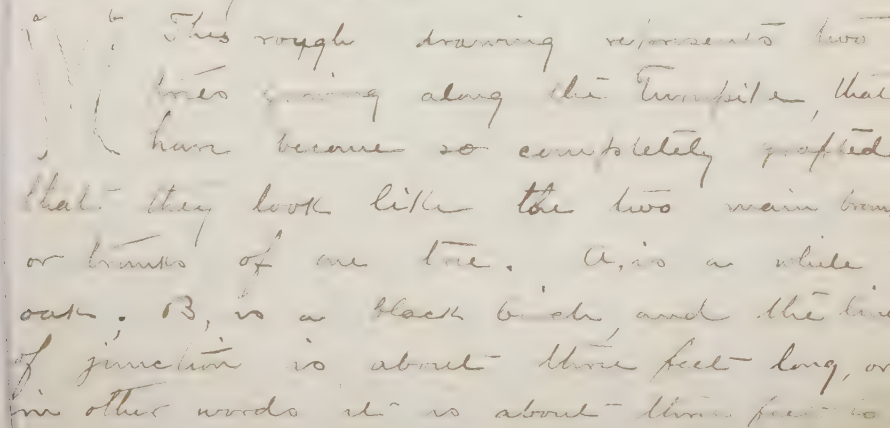 a b This rough drawing represents two
trees growing along the Turnpike, that
have become so completely grafted
that they look like the two main
or trunks of one tree. A, is a white
oak; B, is a black birch, and the line
of junction is about three feet long, or
in other words it is about three feet